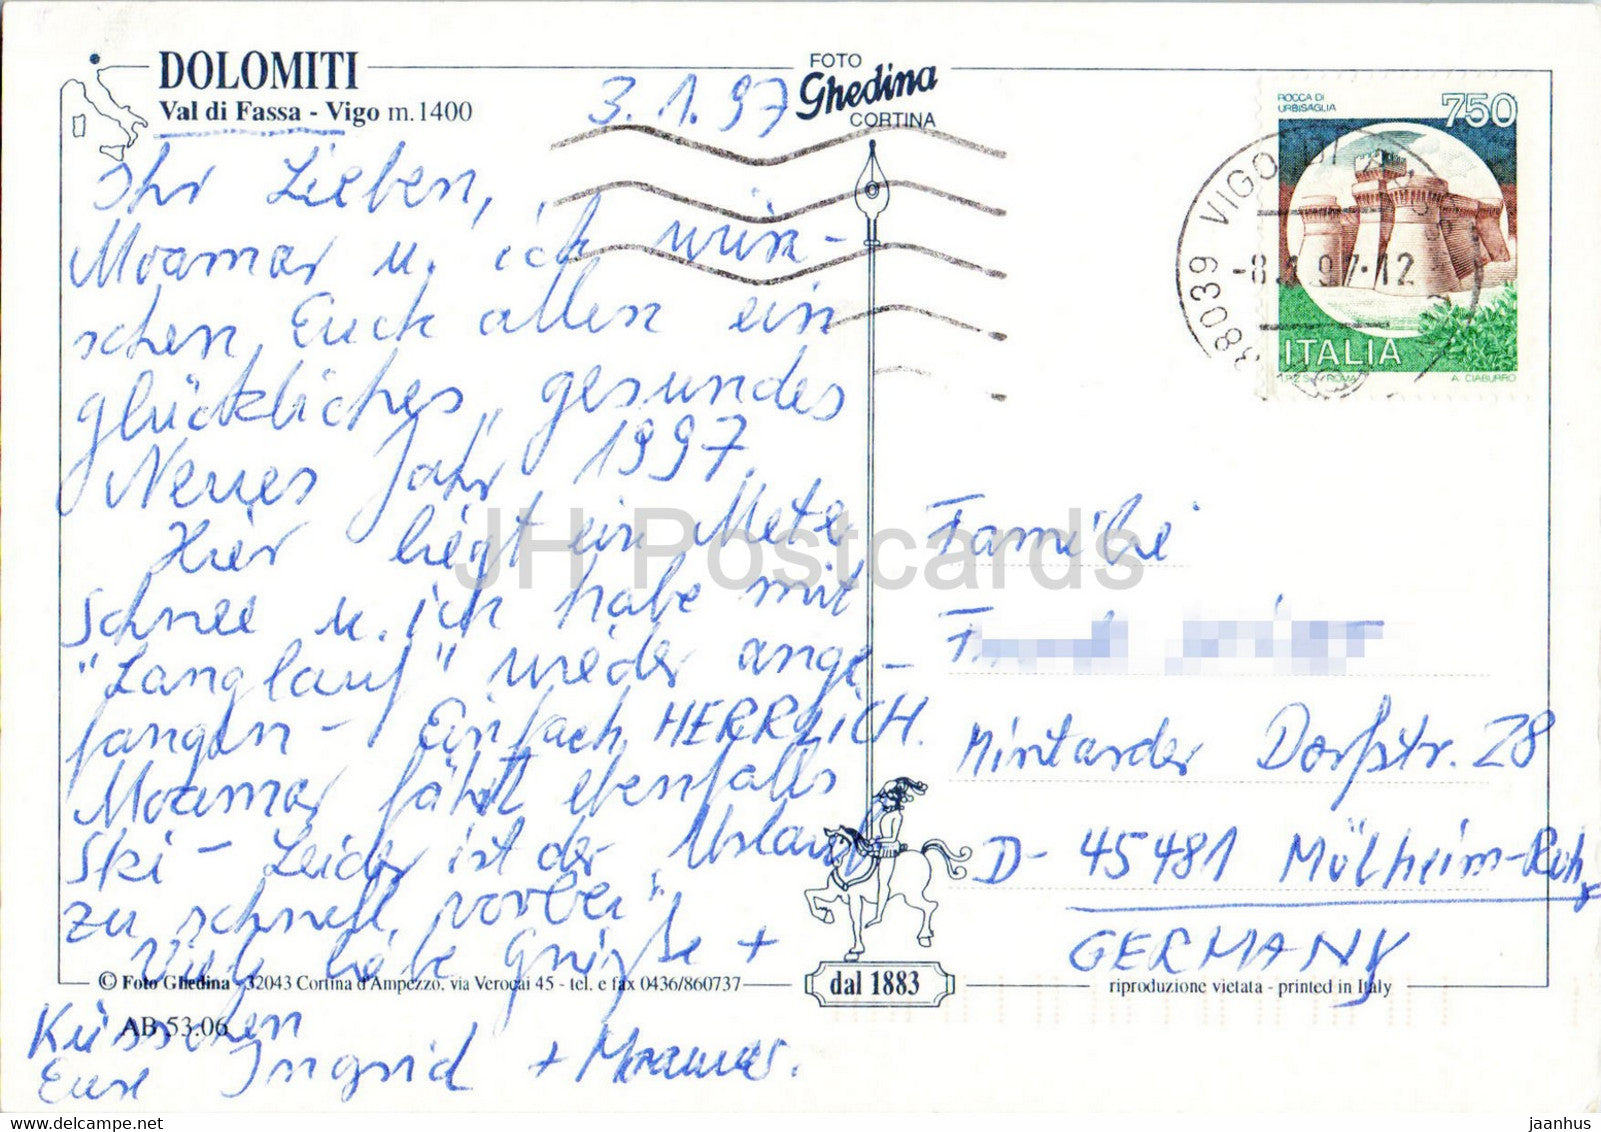 DOLOMITI
Val di Fassa - Vigo m.1400
FOTO
Ghedina
CORTINA
3.1.97
Ihr Lieben,
Moamar u. ich wün-
schen Euch allen ein
glückliches, gesundes
Neues Jahr 1997.
Hier liegt ein Meter
Schnee u. ich habe mit
"Langlauf" wieder ange-
fangen - Einfach HERRLICH.
Moamar fährt ebenfalls
Ski - Leider ist der Urlaub
zu schnell vorbei.
Viele liebe Grüße +
Küsschen
Eure Ingrid + Moamar.
ROCCA DI
URBISAGLIA
750
ITALIA
I.P.Z.S. ROMA
A. CIABURRO
38039 VIGO DI
-8.1.97.12
Familie
Mintarder Dorfstr. 28
D- 45481 Mülheim-Ruhr
GERMANY
© Foto Ghedina - 32043 Cortina d'Ampezzo, via Verocai 45 - tel. e fax 0436/860737
dal 1883
riproduzione vietata - printed in Italy
AB 53.06
JH Postcards
www.delcampe.net
jaanhus